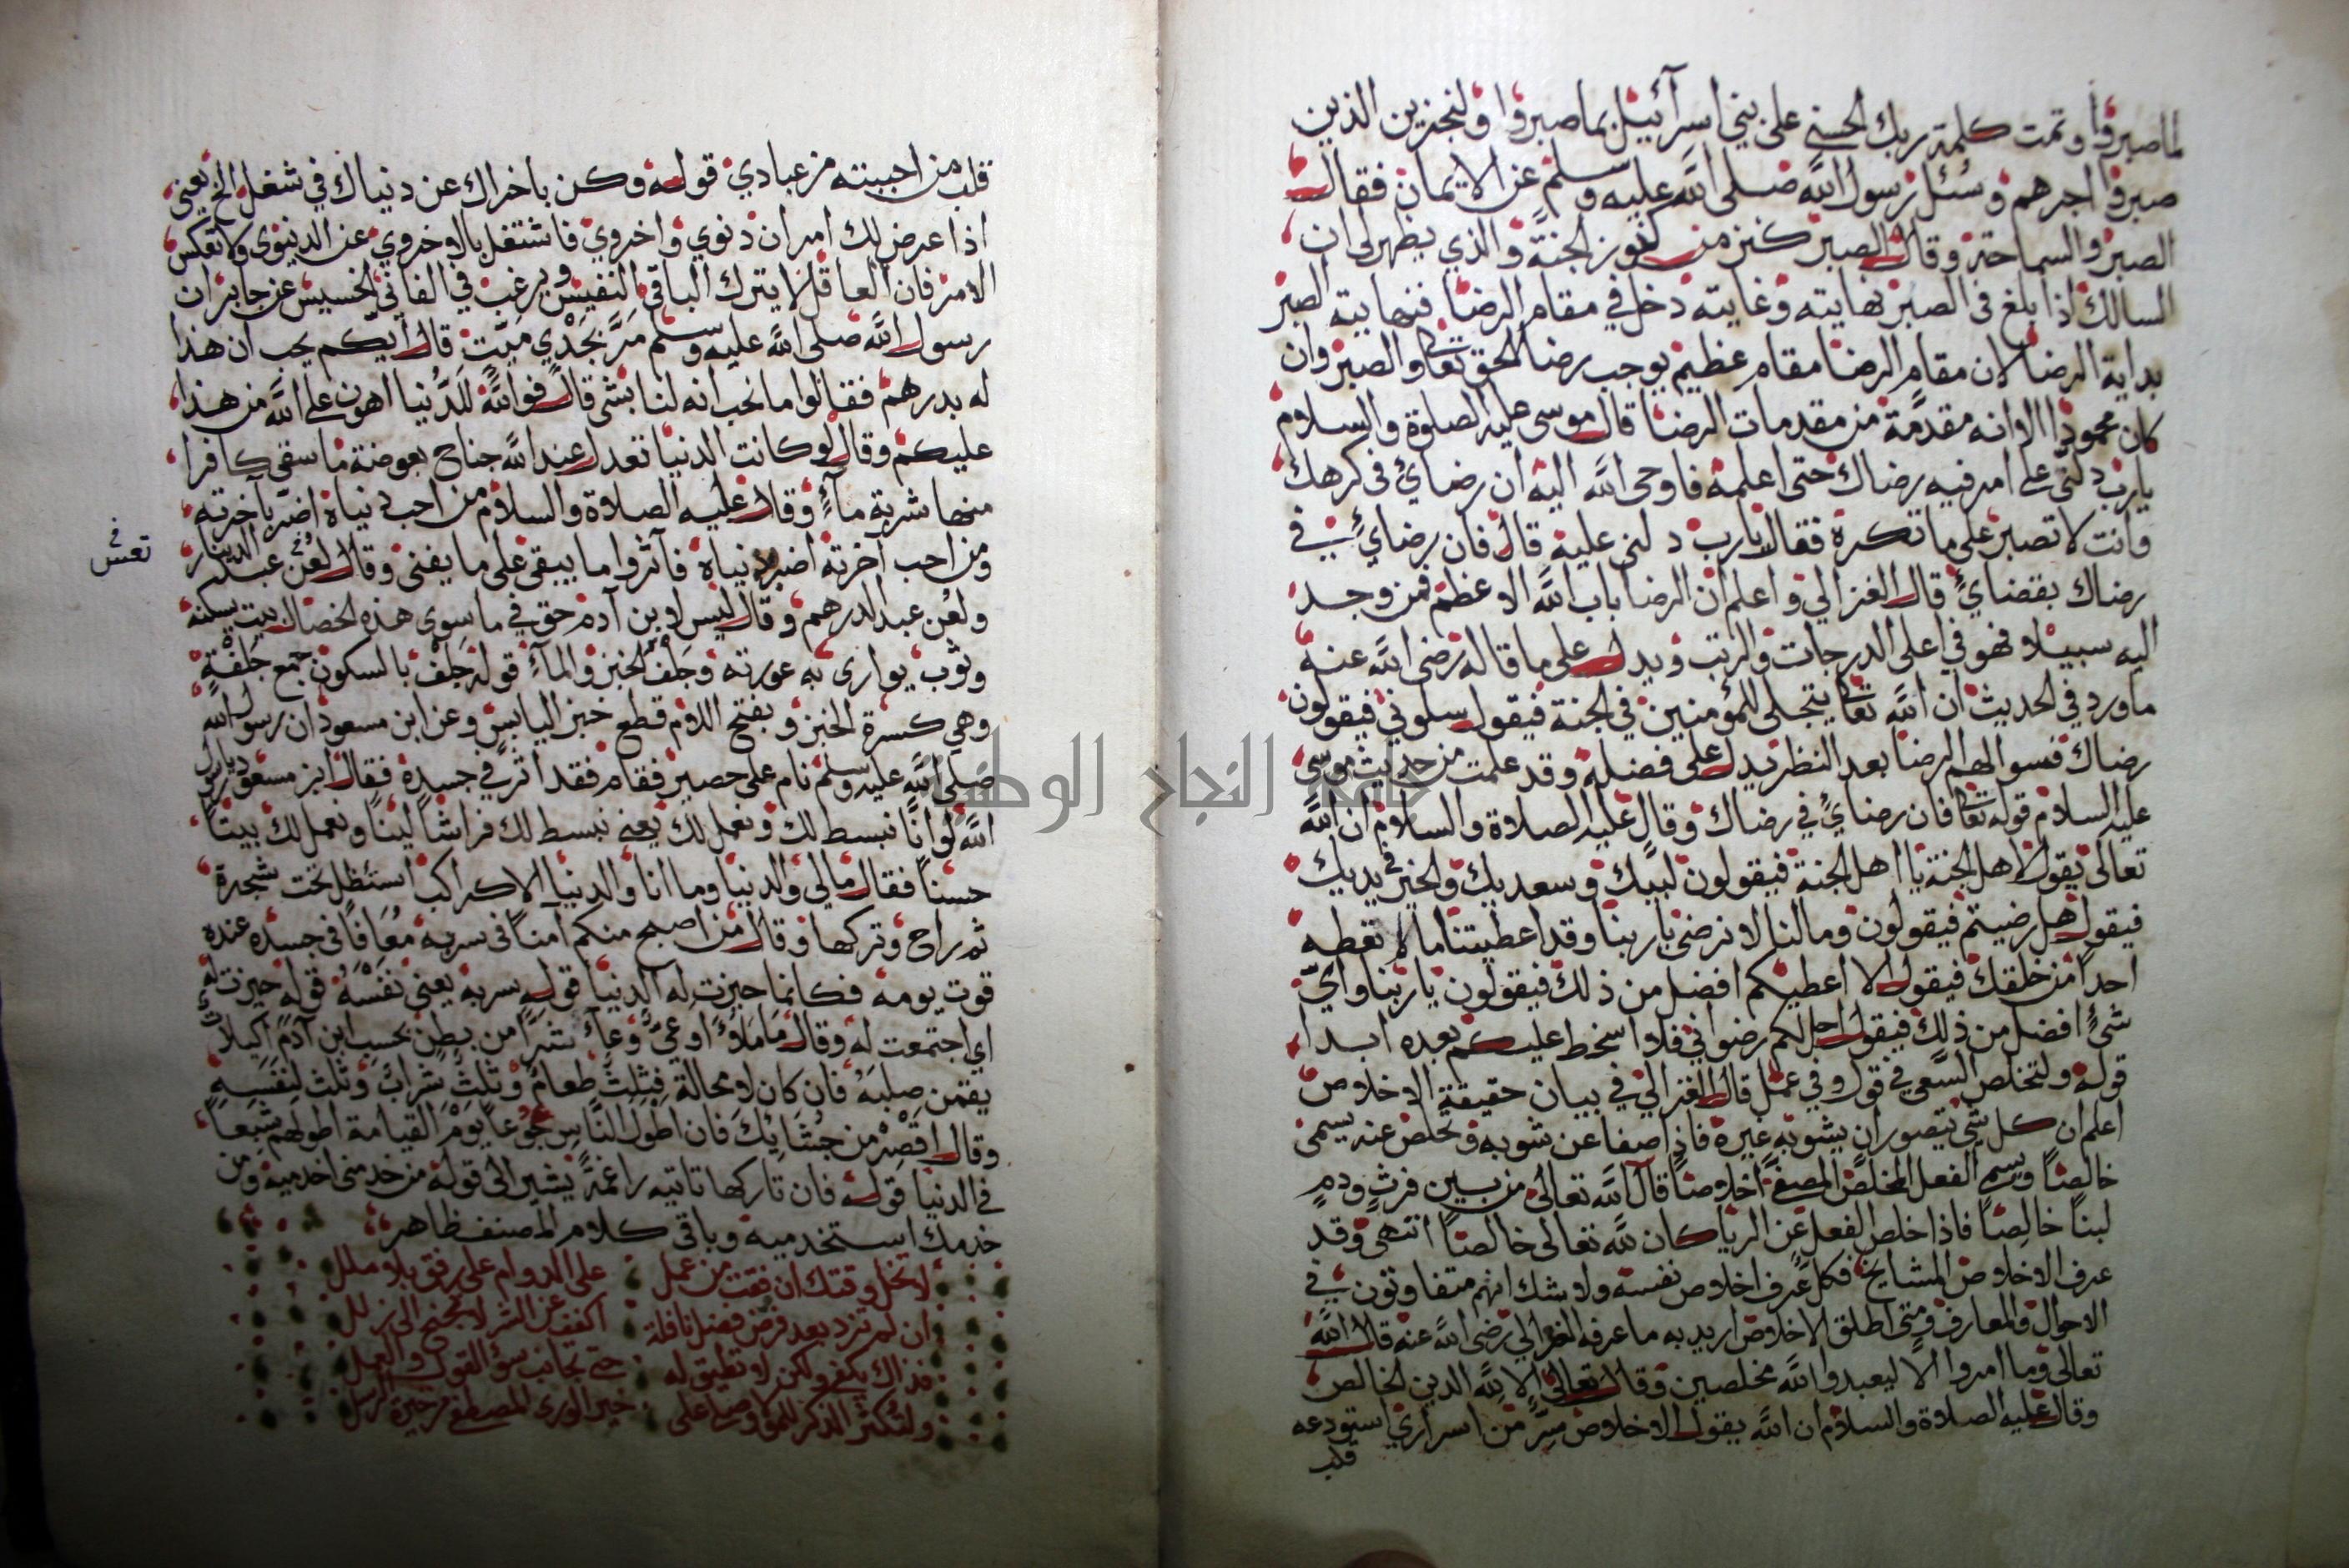 لما صبروا وتمت كلمة ربك الحسنى على بني اسرآئيل بما صبروا ولنجزين الذين
صبروا اجرهم وسئل رسول الله صلى الله عليه وسلم عن الايمان فقال
الصبر والسماحة وقال الصبر كنز من كنوز الجنة والذي يظهر لى ان
السالك اذا بلغ فى الصبر نهايته وغايته دخل في مقام الرضا فنهاية الصبر
بداية الرضا لان مقام الرضا مقام عظيم يوجب رضا الحق تعالى والصبر وان
كان محمودا الا انه مقدمة من مقدمات الرضا قال موسى عليه الصلوة والسلام
يارب دلني على امر فيه رضاك حتى اعلمه فاوحى الله اليه ان رضاي فى كرهك
وانت لا تصبر على ما تكره فقال يارب دلنى عليه قال فان رضاي في
رضاك بقضاي قال الغزالي واعلم ان الرضا باب الله الاعظم فمن وجد
اليه سبيلا فهو في اعلى الدرجات والرتب ويدل على ما قاله رضى الله عنه
ماورد في الحديث ان الله تعالى يتجلى للمؤمنين في الجنة فيقول سلوني فيقولون
رضاك فسوالهم الرضا بعد النظر يدل على فضله وقد علمت من حديث موسى
عليه السلام قوله تعالى فان رضاي في رضاك وقال عليه الصلاة والسلام ان الله
تعالى يقول لاهل الجنة يا اهل الجنة فيقولون لبيك وسعديك والخير في يديك
فيقول هل رضيتم فيقولون وما لنا لا نرضى ياربنا وقد اعطيتنا ما لم تعطه
احدا من خلقك فيقول الا اعطيكم افضل من ذلك فيقولون ياربنا واي
شئ افضل من ذلك فيقول احل لكم رضواني فلا اسخط عليكم بعده ابدا
قوله ولتخلص السعي في قول وفي عمل قال الغزالي في بيان حقيقة الاخلاص
اعلم ان كل شي يتصور ان يشوبه غيره فاذا صفا عن شوبه وخلص عنه يسمى
خالصا ويسمى الفعل المخلص المصفى اخلاصا قال الله تعالى من بين فرث ودم
لبنا خالصا فاذا خلص الفعل عن الريا كان لله تعالى خالصا انتهى وقد
عرف الاخلاص المشايخ فكل عرف اخلاص نفسه ولا شك انهم متفاوتون في
الاحوال والمعارف ومتى اطلق الاخلاص اريد به ما عرفه الغزالي رضى الله عنه قال الله
تعالى وما امروا الا ليعبدوا الله مخلصين وقال تعالى الا لله الدين الخالص
وقال عليه الصلاة والسلام ان الله يقول الاخلاص سر من اسراري استودعه
قلب
قلب من احببته من عبادي قوله وكن باخراك عن دنياك في شغل الخ يعنى
اذا عرض لك امران دنوي واخروي فاشتغل بالاخروي عن الدنيوى ولا تعكس
الامر فان العاقل لا يترك الباقي النفيس ويرغب في الفاني الخسيس عن جابر ان
رسول الله صلى الله عليه وسلم مر بجدي ميت قال ايكم يحب ان هذا
له بدرهم فقالوا ما نحب انه لنا بشى قال فوالله للدنيا اهون على الله من هذا
عليكم وقال لو كانت الدنيا تعدل عند الله جناح بعوضة ما سقى كافرا
منها شربة مآء وقال عليه الصلاة والسلام من احب دنياه اضر بآخرته
ومن احب آخرته اضر بدنياه فآثروا ما يبقى على ما يفنى وقال لعن عبد الدينار
تعس
ولعن عبد الدرهم وقال ليس لابن آدم حق في ما سوى هذه الخصال بيت يسكنه
وثوب يوارى به عورته وجلف الخبز والمآء قوله جلف بالسكون جمع جلفة
وهي كسرة الخبز وبفتح اللام قطع خبز اليابس وعن ابن مسعود ان رسول الله
صلى الله عليه وسلم نام على حصير فقام فقد اثر في جسده فقال ابن مسعود يارسول
الله لو انا نبسط لك ونعمل لك يعنى نبسط لك فراشا لينا ونعمل لك بيتا
حسنا فقال مالي والدنيا وما انا والدنيا الا كراكب استظل تحت شجرة
ثم راح وتركها وقال من اصبح منكم آمنا فى سربه معافا فى جسده عنده
قوت يومه فكانما حيزت له الدنيا قوله سربه يعنى نفسه قوله حيزت له
اي اجتمعت له وقال ما ملأ اوعي وعآء شرا من بطن بحسب ابن آدم اكيلات
يقمن صلبه فان كان لا محالة فثلث طعام وثلث شراب وثلث لنفسه
وقال اقصر من جشائك فان اطول الناس جوعا يوم القيامة اطولهم شبعا
في الدنيا قوله فان تاركها تاتيه راغمة يشير الى قوله من خدمنى اخدميه ومن
خدمك استخدميه وباقى كلام المصنف ظاهر
لا تخل وقتك ان فقت من عمل على الدوام على رفق بلا ملل
ان لم تزد بعد فرض فضل نافلة اكفف عن الشر لا تجنح الى زلل
فذاك يكفي ولكن لا تطيق له حتى تجانب سؤ القول والعمل
ولتكثر الذكر للمولا وصل على خير الورى المصطفى من خيرة الرسل
جامعة النجاح الوطنية